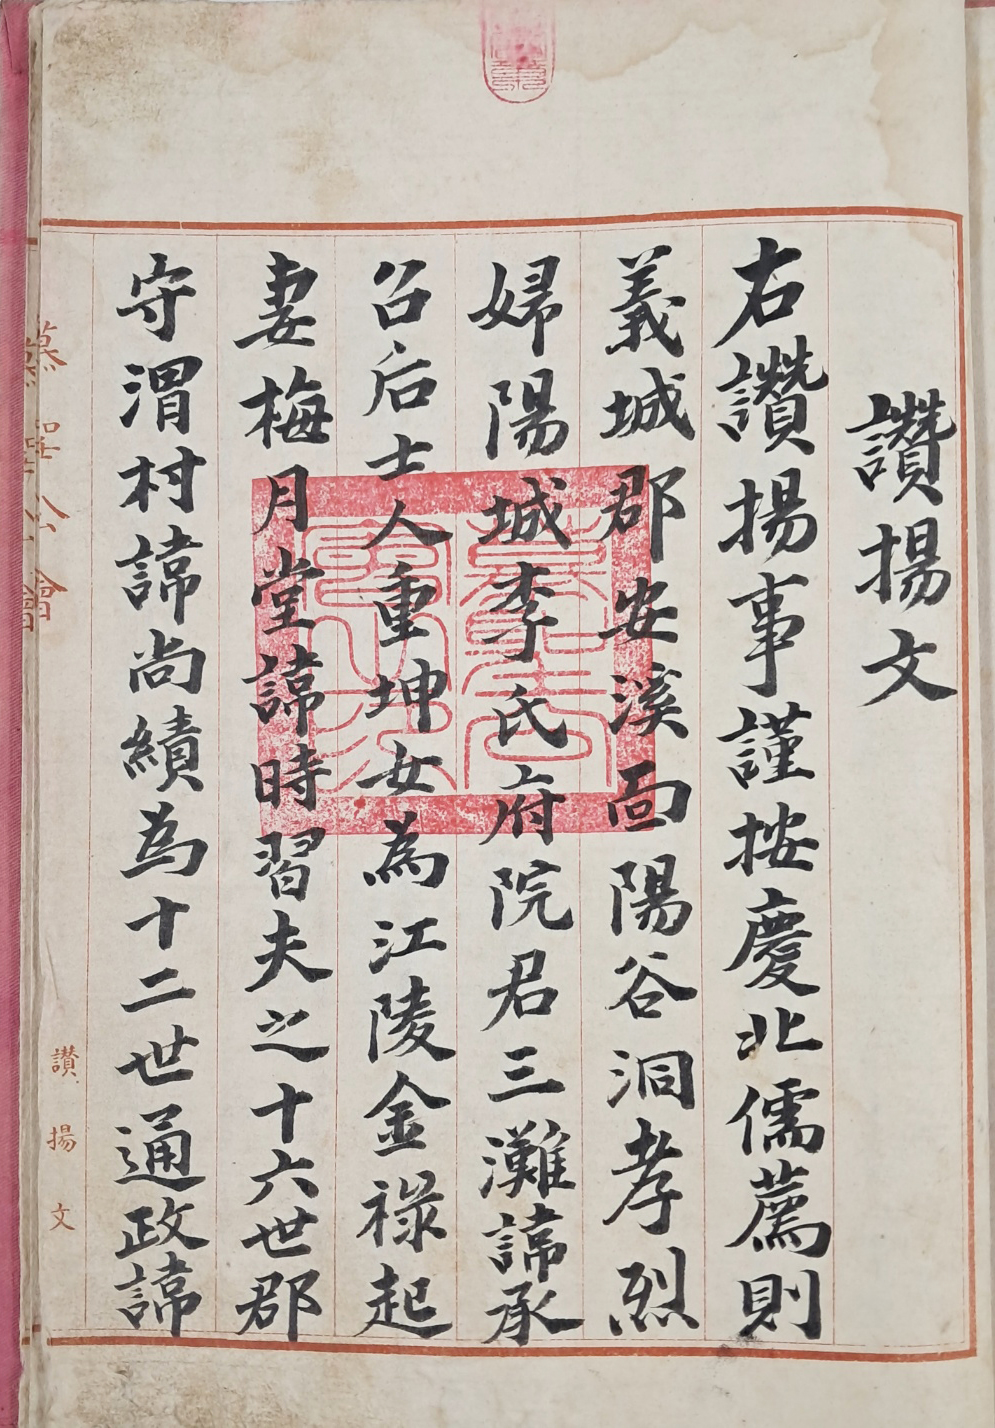 讚揚文
右讚揚事謹按慶北儒薦則
義城郡安溪面陽谷洞孝烈
婦陽城李氏府院君三灘諱承
召后士人重坤女為江陵金祿起
妻梅月堂諱時習夫之十六世郡
守渭村諱尚績為十二世通政諱
讚揚文